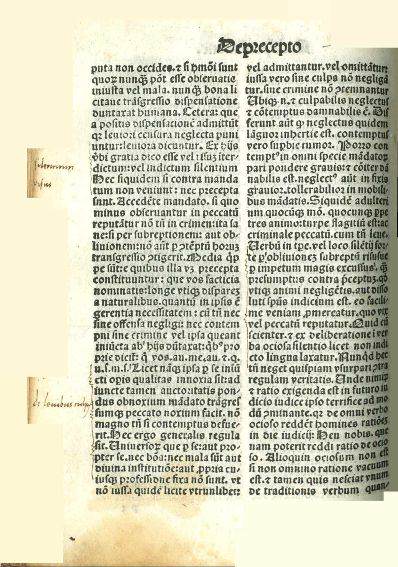 De precepto
puta non occides. & si hmōi sunt
quoꝝ nunq̄ pōt esse obseruatio
iniusta vel mala. nunq̄ bona li
citaue trāsgressio dispensatione
duntaxat humana. Cetera: que
a positis dispensatione admittūt
qr leuiori censura neglecta puni
untur: leuiora dicuntur. Ex hijs
vbi gratia dico esse vel risus iter-
dictum: vel indictum silentium
Nec siquidem si contra manda
tum non veniunt: nec precepta
sunt. Accedēte mandato. si quo
minus obseruantur in peccatū
reputātur nō tn̄ in crimen: ita sa
ne: si per subreptionem: aut ob-
liuionem: nō aūt p ꝯtēptū horuȝ
transgressio ꝯtigerit. Media q̄p
pe sūt: e quibus illa vȝ precepta
constituuntur: que vos facticia
nominatis: longe vtiqȝ disparia
a naturalibus. quantū in ipsis ē
gerentia necessitatem: cū tn̄ nec
sine offensa negligi: nec contem
pni sine crimine vel ipsa queant
iniucta
prie dicit: q̄ vos. an. me. au. t. q.
u. s. m. s. Licet nāqȝ ipsa p se iniū
cti opis qualitas innoxia sit: ad
iuncte tamen auctoritatis pon-
dus obnoxium mādato trāgres
sumqȝ peccato noxium facit. nō
magno tn̄ si contemptus defue-
rit. Hec ergo generalis regula
sit. Uniuersoꝝ que p se aut prop
ter se. nec bōa: nec mala sūt aut
diuina institutiōe: aut ppria cu-
iusqȝ professione fixa nō sunt. vt
nō iussa quidē licite vtrunlibet:
vel admittantur. vel omittātur:
iussa vero sine culpa nō negligā
tur. sine crimine nō ꝯtemnantur
Ubiqȝ n. & culpabilis neglectus
& cōtemptus damnabilis ē. Dif
ferunt aūt qȝ neglectus quidem
lāgnor inertie est. contemptus
vero supbie tumor. Porro con
tempt⁹ in omni specie mādatoꝝ
pari pondere grauis: & cōiter dā
nabilis est. neglect⁹ aūt in fixis
grauior. tollerabilior in mobili-
bus mādatis. Siquidē adulteri
um quocūqȝ mō. quocunqȝ ppe
tres animo: turpe flagitiū est: ac
criminale peccatū. cum tn̄ leuiꝰ
Uerbū in tpe. vel loco silētij for-
te p obliuionez subreptū risusue
p impetum magis excussus. q̄
presumptus contra pceptuȝ. qb
vtiqȝ animi negligētis. aut disso
luti ipsūs indicium est. eo facili⁹
me veniam pmereatur. quo vix
vel peccatū reputatur. Quid cū
scienter. & ex deliberatione i ver
ba ociosa silentio licet non indi
cto lingua laxatur. Nunqd hec
tn̄ neget quispiam vsurpari ꝯtra
regulam veritatis. Unde nimiȝ
& ratio exigenda est in futuro iu
dicio iudice ipso terrifice ad mo
dū ꝯminante. qȝ de omni verbo
ocioso reddēt homines ratiōes
in die iudicij: Heu nobis. que
nam poterit reddi ratio de ocio
so. Alioquin ociosum non est
si non omnino ratione vacuum
est. & tamen quis nesciat vnum
de traditionis verbum quan-